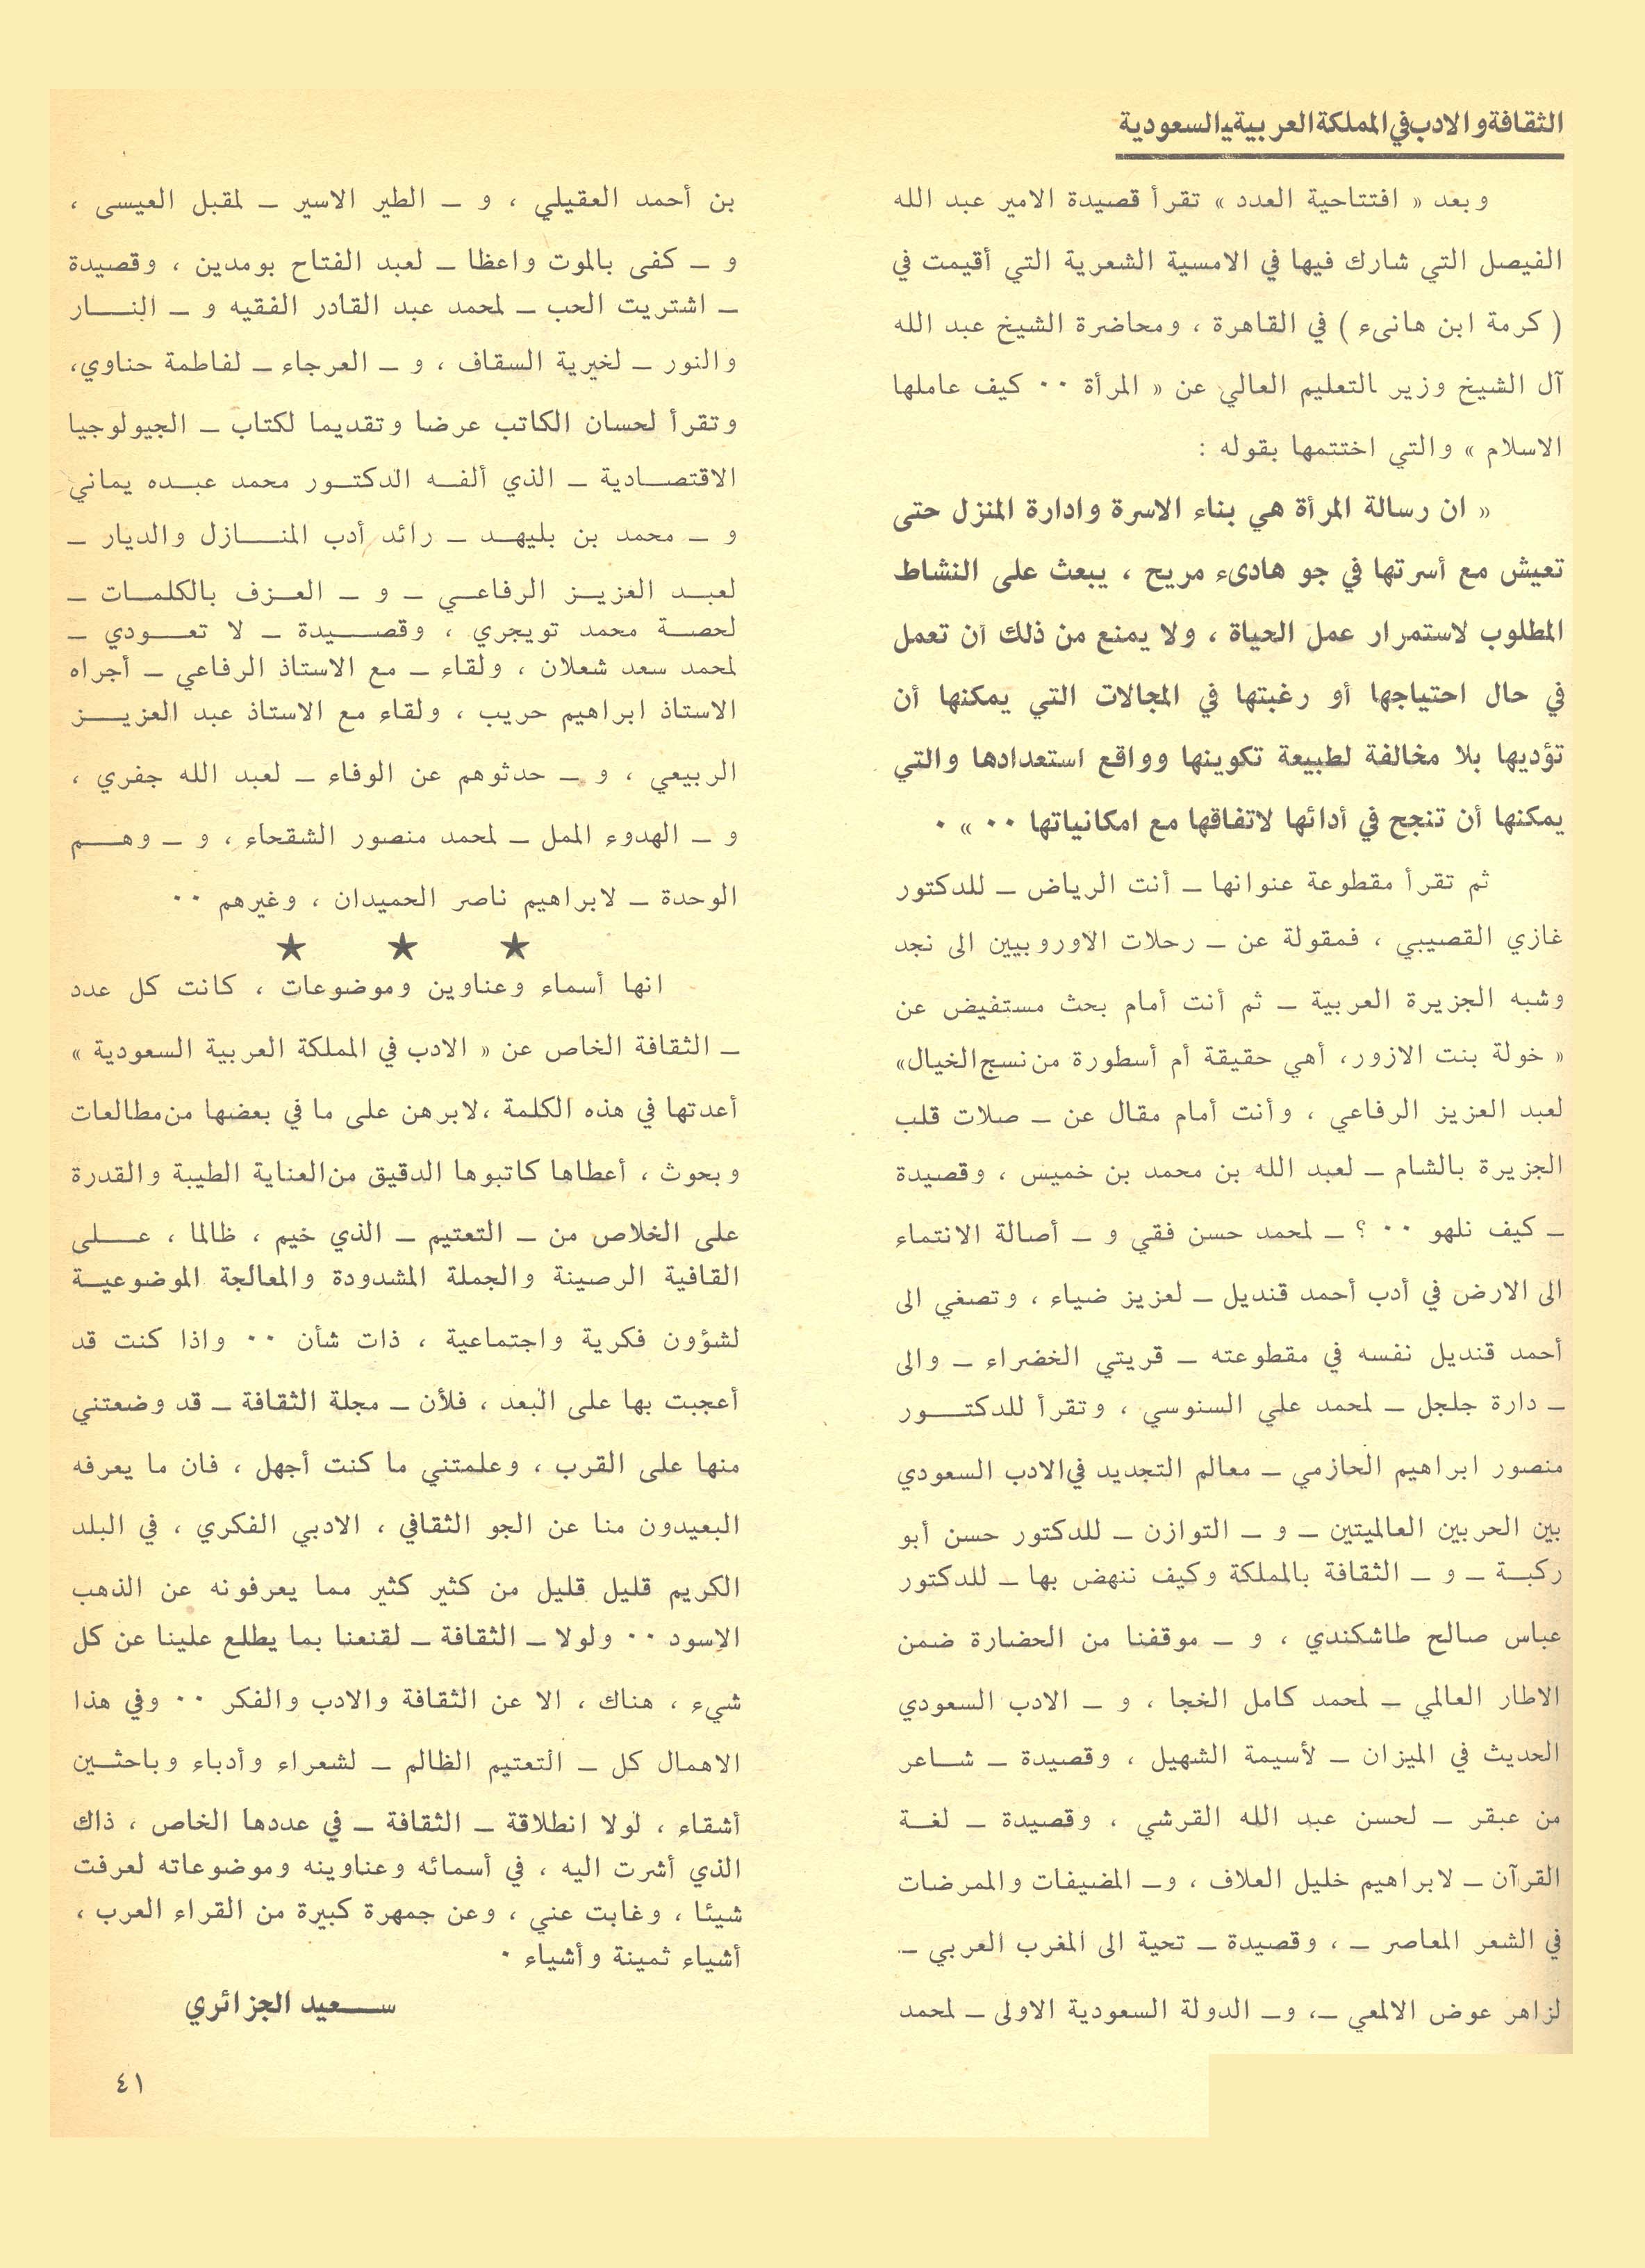 الثقافة والادب في المملكة العربية السعودية
وبعد « افتتاحية العدد » تقرأ قصيدة الامير عبد الله
الفيصل التي شارك فيها في الامسية الشعرية التي أقيمت في
( كرمة ابن هانىء ) في القاهرة ، ومحاضرة الشيخ عبد الله
آل الشيخ وزير التعليم العالي عن « المرأة ٠٠ كيف عاملها
الاسلام » والتي اختتمها بقوله :
« ان رسالة المرأة هي بناء الاسرة وادارة المنزل حتى
تعيش مع أسرتها في جو هادىء مريح ، يبعث على النشاط
المطلوب لاستمرار عمل الحياة ، ولا يمنع من ذلك أن تعمل
في حال احتياجها أو رغبتها في المجالات التي يمكنها أن
تؤديها بلا مخالفة لطبيعة تكوينها وواقع استعدادها والتي
يمكنها أن تنجح في أدائها لاتفاقها مع امكانياتها ٠٠ » ٠
ثم تقرأ مقطوعة عنوانها ــ أنت الرياض ــ للدكتور
غازي القصيبي ، فمقولة عن ــ رحلات الاوروبيين الى نجد
وشبه الجزيرة العربية ــ ثم أنت أمام بحث مستفيض عن
« خولة بنت الازور، أهي حقيقة أم أسطورة من نسج الخيال»
لعبد العزيز الرفاعي ، وأنت أمام مقال عن ــ صلات قلب
الجزيرة بالشام ــ لعبد الله بن محمد بن خميس ، وقصيدة
ــ كيف نلهو ٠٠ ؟ ــ لمحمد حسن فقي و ــ أصالة الانتماء
الى الارض في أدب أحمد قنديل ــ لعزيز ضياء ، وتصغي الى
أحمد قنديل نفسه في مقطوعته ــ قريتي الخضراء ــ والى
ــ دارة جلجل ــ لمحمد علي السنوسي ، وتقرأ للدكتـــور
منصور ابراهيم الحازمي ــ معالم التجديد في الادب السعودي
بين الحربين العالميتين ــ و ــ التوازن ــ للدكتور حسن أبو
ركبـة ــ و ــ الثقافة بالمملكة وكيف ننهض بها ــ للدكتور
عباس صالح طاشكندي ، و ــ موقفنا من الحضارة ضمن
الاطار العالمي ــ لمحمد كامل الخجا ، و ــ الادب السعودي
الحديث في الميزان ــ لأسيمة الشهيل ، وقصيدة ــ شـاعر
من عبقر ــ لحسن عبد الله القرشي ، وقصيدة ــ لغـة
القرآن ــ لابراهيم خليل العلاف ، وــ المضيفات والممرضات
في الشعر المعاصر ــ ، وقصيدة ــ تحية الى المغرب العربي ــ
لزاهر عوض الالمعي ــ، وــ الدولة السعودية الاولى ــ لمحمد
بن أحمد العقيلي ، و ــ الطير الاسير ــ لمقبل العيسى ،
و ــ كفى بالموت واعظا ــ لعبد الفتاح بومدين ، وقصيدة
ــ اشتريت الحب ــ لمحمد عبد القادر الفقيه و ــ النـــار
والنور ــ لخيرية السقاف ، و ــ العرجاء ــ لفاطمة حناوي،
وتقرأ لحسان الكاتب عرضا وتقديما لكتاب ــ الجيولوجيا
الاقتصـادية ــ الذي ألفـه الدكتـور محمد عبـده يماني
و ــ محمد بن بليهـد ــ رائد أدب المنـــازل والديار ــ
لعبـد العزيـز الرفاعـي ــ و ــ العـزف بالكلمـات ــ
لحصـة محمد تويجري ، وقصـيدة ــ لا تعـودي ــ
لمحمد سعد شعلان ، ولقاء ــ مع الاستاذ الرفاعي ــ أجراه
الاستاذ ابراهيم حريب ، ولقاء مع الاستاذ عبد العزيـــز
الربيعي ، و ــ حدثوهم عن الوفاء ــ لعبد الله جفري ،
و ــ الهدوء الممل ــ لمحمد منصور الشقحاء ، و ــ وهـــم
الوحدة ــ لابراهيم ناصر الحميدان ، وغيرهم ٠٠
★ ★ ★
انها أسماء وعناوين وموضوعات ، كانت كل عدد
ــ الثقافة الخاص عن « الادب في المملكة العربية السعودية »
أعدتها في هذه الكلمة ،لابرهن على ما في بعضها من مطالعات
وبحوث ، أعطاها كاتبوها الدقيق من العناية الطيبة والقدرة
على الخلاص من ــ التعتيم ــ الذي خيم ، ظالما ، عـــلى
القافية الرصينة والجملة المشدودة والمعالجة الموضوعيـة
لشؤون فكرية واجتماعية ، ذات شأن ٠٠ واذا كنت قد
أعجبت بها على البعد ، فلأن ــ مجلة الثقافة ــ قد وضعتني
منها على القرب ، وعلمتني ما كنت أجهل ، فان ما يعرفه
البعيدون منا عن الجو الثقافي ، الادبي الفكري ، في البلد
الكريم قليل قليل من كثير كثير مما يعرفونه عن الذهب
الاسود ٠٠ ولولا ــ الثقافة ــ لقنعنا بما يطلع علينا عن كل
شيء ، هناك ، الا عن الثقافة والادب والفكر ٠٠ وفي هذا
الاهمال كل ــ التعتيم الظالم ــ لشعراء وأدباء وباحثـين
أشقاء ، لولا انطلاقة ــ الثقافة ــ في عددها الخاص ، ذاك
الذي أشرت اليه ، في أسمائه وعناوينه وموضوعاته لعرفت
شيئا ، وغابت عني ، وعن جمهرة كبيرة من القراء العرب ،
أشياء ثمينة وأشياء ٠
ســـعيد الجزائري
٤١